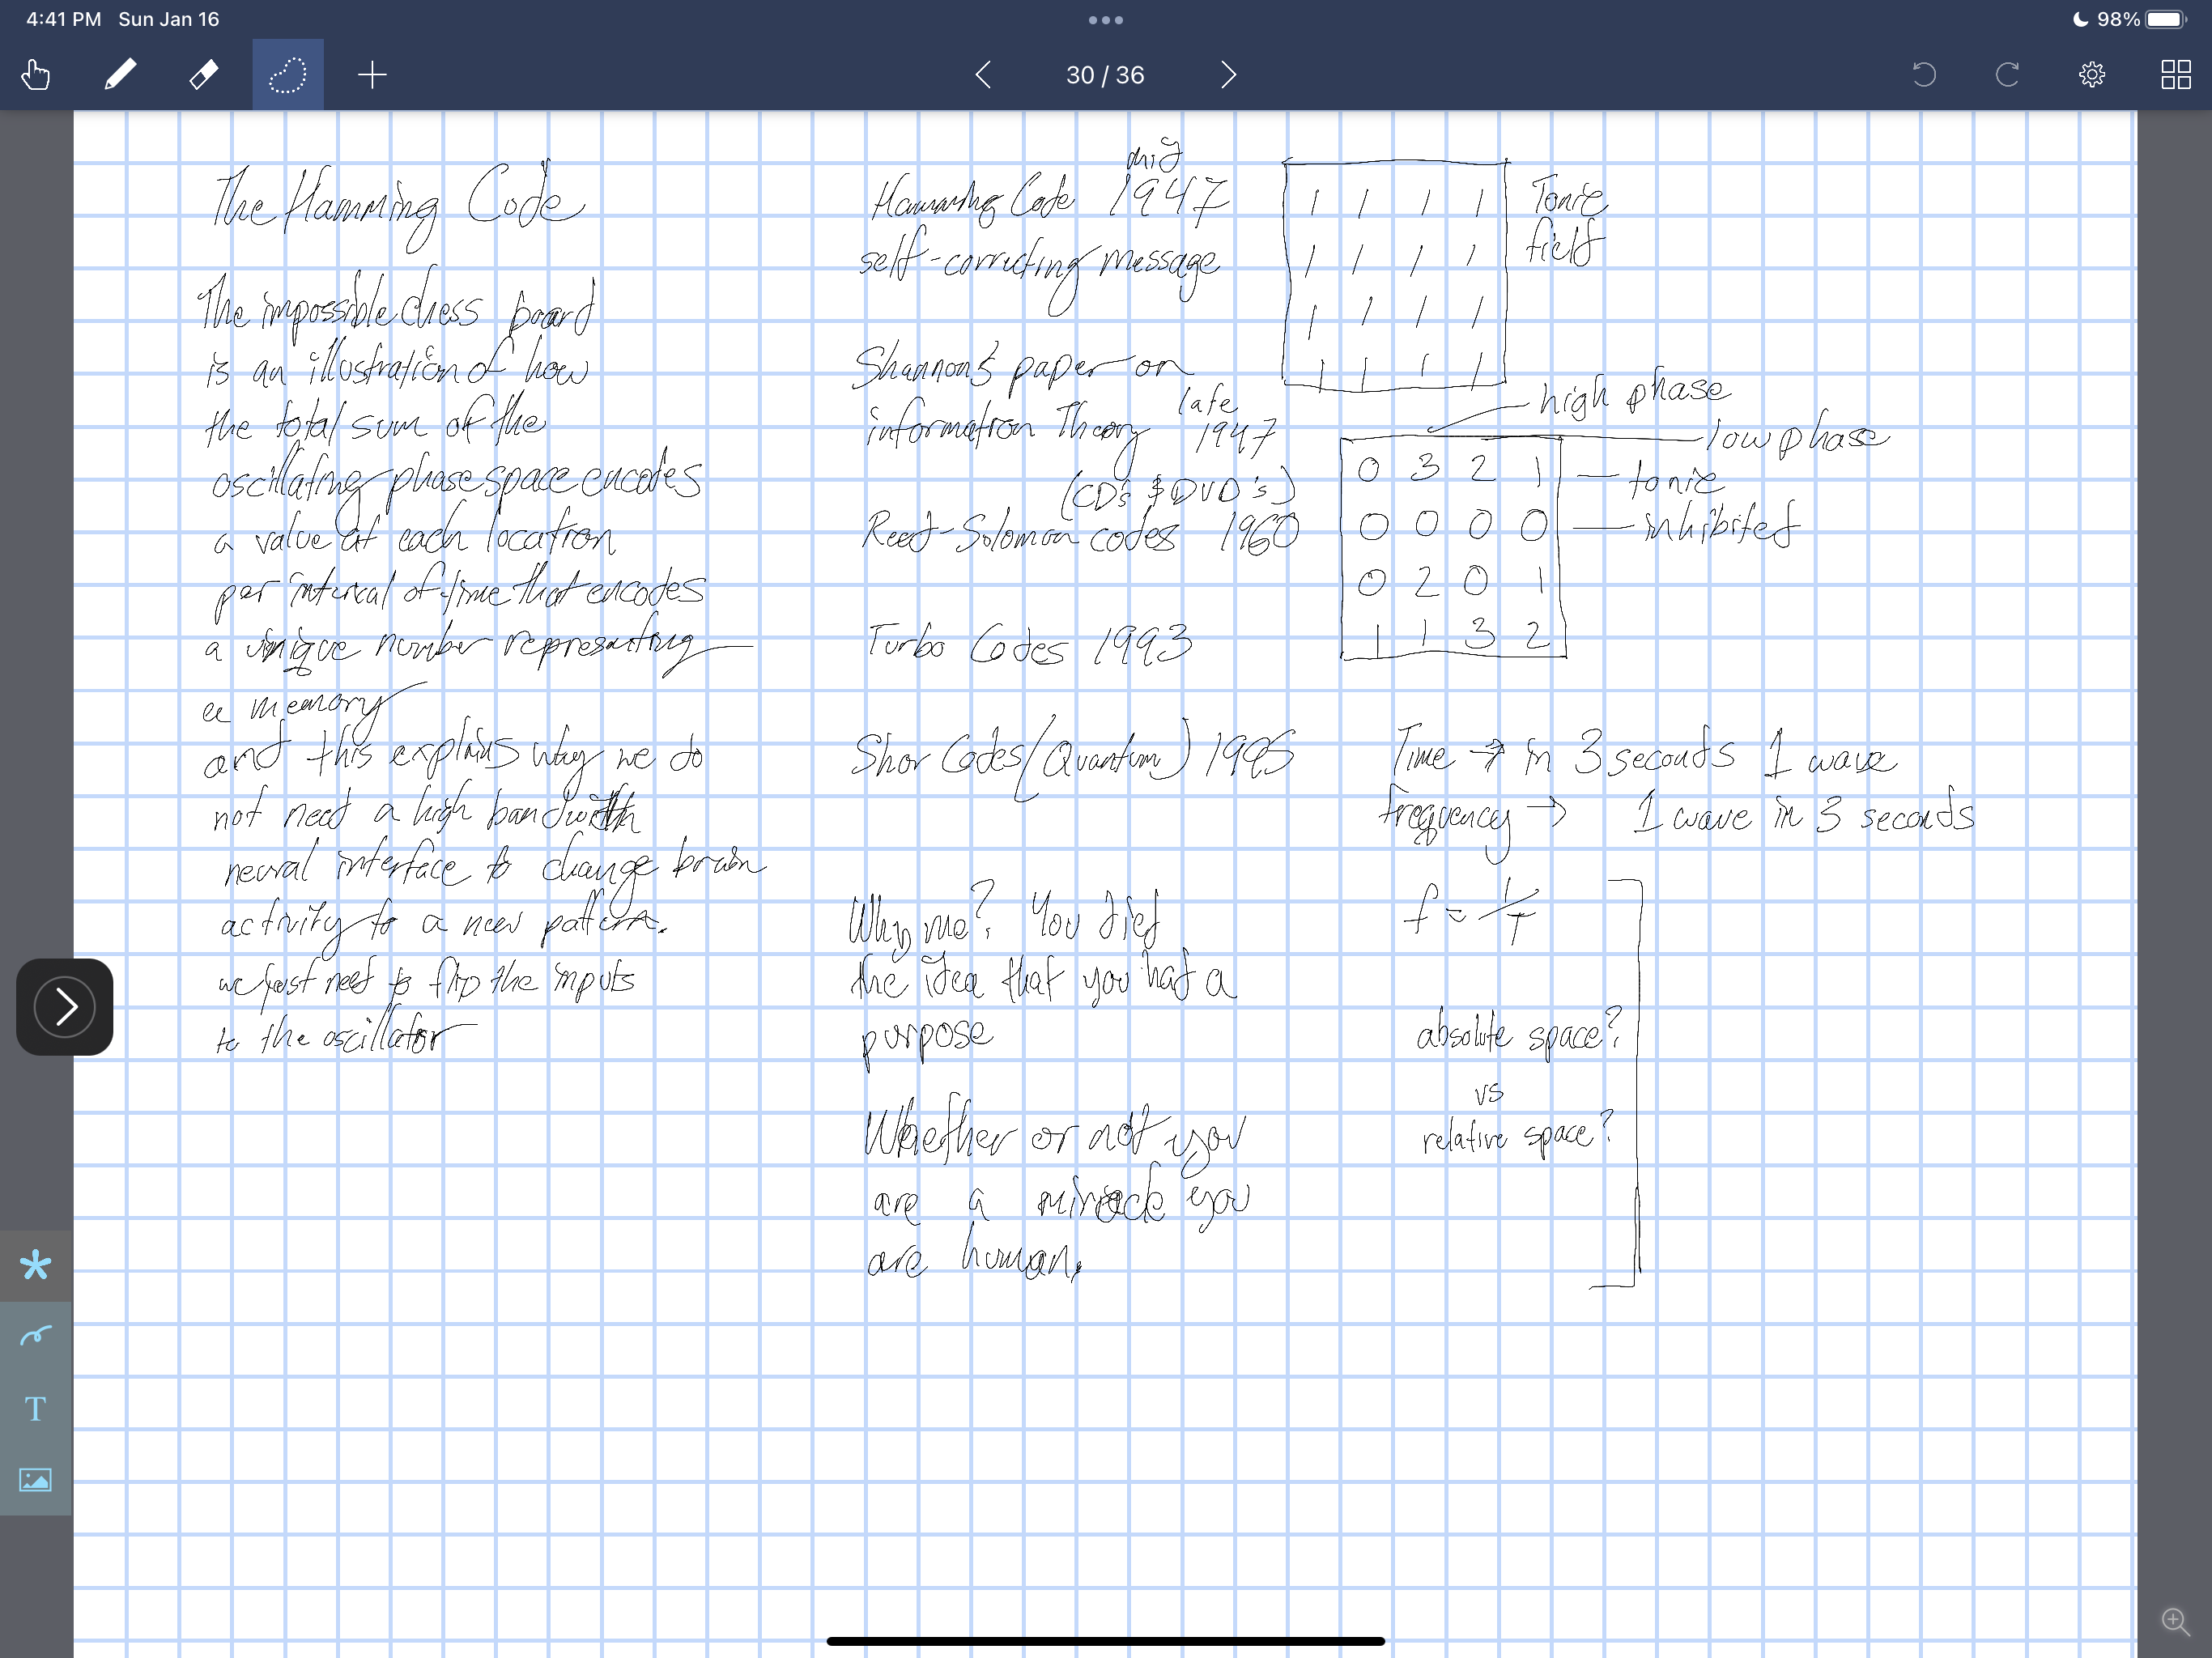 4:41 PM Sun Jan 16
98%
30 / 36
The Hamming Code
The impossible chess board
is an illustration of how
the total sum of the
oscillating phase space encodes
a value at each location
per interval of time that encodes
a unique number representing
a memory
and this explains why we do
not need a high bandwith
neural interface to change brain
activity to a new pattern.
we just need to flip the inputs
to the oscillator
mid
Hamming Code 1947
self-correcting message
Shannon's paper on
late
information Theory 1947
(CD's & DVD's)
Reed-Solomon codes 1960
Turbo Codes 1993
Shor Codes (Quantum) 1995
Why me? You died
the idea that you had a
purpose
Whether or not you
are a miracle you
are human.
1 1 1 1 Tonic
field
1 1 1 1
1 1 1 1
1 1 1 1
high phase
low phase
0 3 2 1 — tonic
0 0 0 0 — inhibited
0 2 0 1
1 1 3 2
Time → in 3 seconds 1 wave
frequency → 1 wave in 3 seconds
f = 1/T
absolute space?
vs
relative space?
T